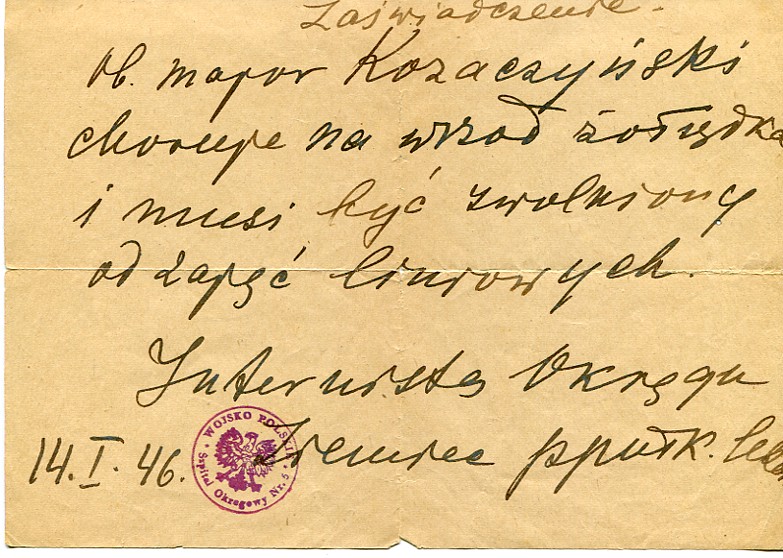 Zaświadczenie.
Ob. major Kozaczyński
choruje na wrzod żołądka
i musi być zwolniony
od zajęć liniowych.
Internista Okręgu
14.I.46.
ppułk.
WOJSKO POLSKIE
Szpital Okręgowy Nr. 5